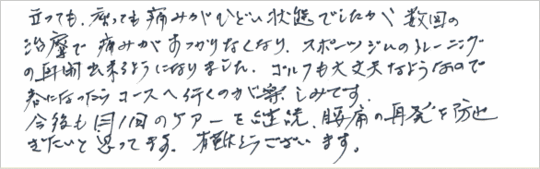 立っても、座っても痛みがひどい状態でしたが、数回の
治療で痛みがすっかりなくなり、スポーツジムのトレーニング
の再開出来るようになりました。ゴルフも大丈夫なようなので
春になったらコースへ行くのが楽しみです。
今後も月1回のケアーを継続、腰痛の再発を防止
ぎたいと思ってます。有難とうございます。